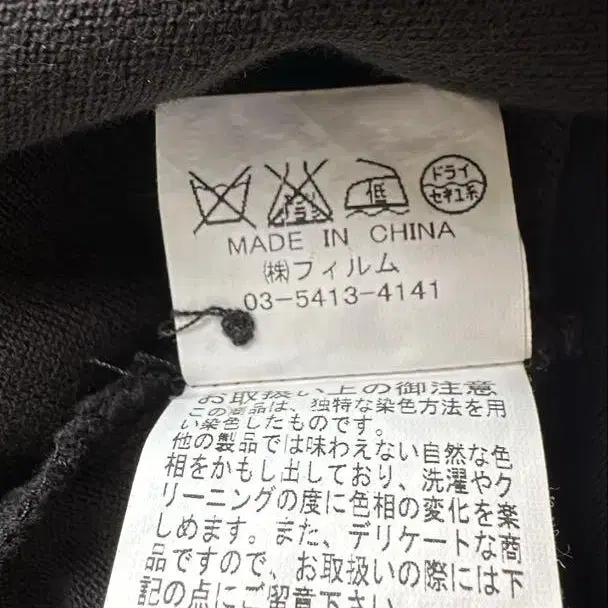 低 ドライ
セキユ系
MADE IN CHINA
㈱フィルム
03-5413-4141
お取扱い上の御注意
この商品は、独特な染色方法を用
い染色したものです。
他の製品では味わえない自然な色
相をかもし出しており、洗濯やク
リーニングの度に色相の変化を楽
しめます。また、デリケートな商
品ですので、お取扱いの際には下
記の点にご留意下さい